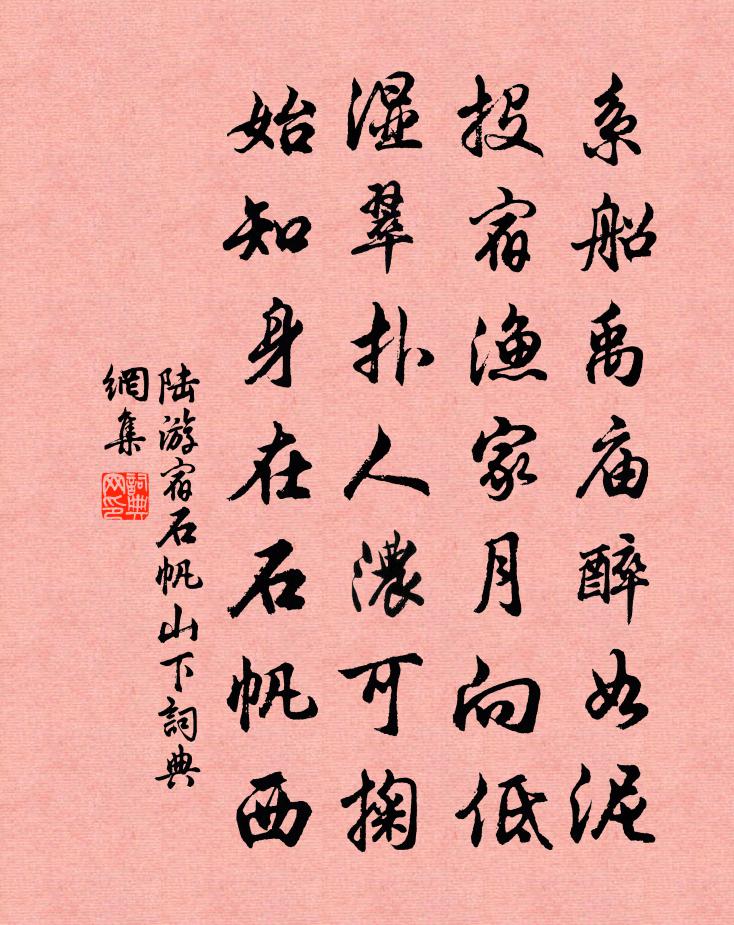 系船禹庙醉如泥
投宿渔家月向低
湿翠扑人濃可掬
始知身在石帆西
陆游宿石帆山下詞典
網集
詞典
网印